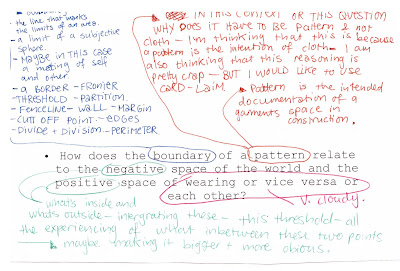 - the line that marks
the limits of an area.
- a limit of a subjective
sphere.
- Maybe in this case
a meeting of self
and other.
- a BORDER - FRONIER
- THRESHOLD - PARTITION.
- FENCELINE - WALL - MARGIN
- CUT OFF POINT - EDGES
- DIVIDE + DIVISION - PERIMETER
IN THIS CONTEXT OR THIS QUESTION
WHY DOES IT HAVE TO BE PATTERN & not
cloth - I'm thinking that this is because
a pattern is the intention of cloth - I am
also thinking that this reasoning is
pretty crap - BUT I WOULD LIKE TO USE
CARD - LAIM
Pattern is the intended
documentation of a
garments space in
construction.
• How does the boundary of a pattern relate
to the negative space of the world and the
positive space of wearing or vice versa or
each other?
V. cloudy.
whats inside and
whats outside - intergrating these - this threshold - all
the experiencing of what inbetween these two points
maybe making it bigger + more obious.